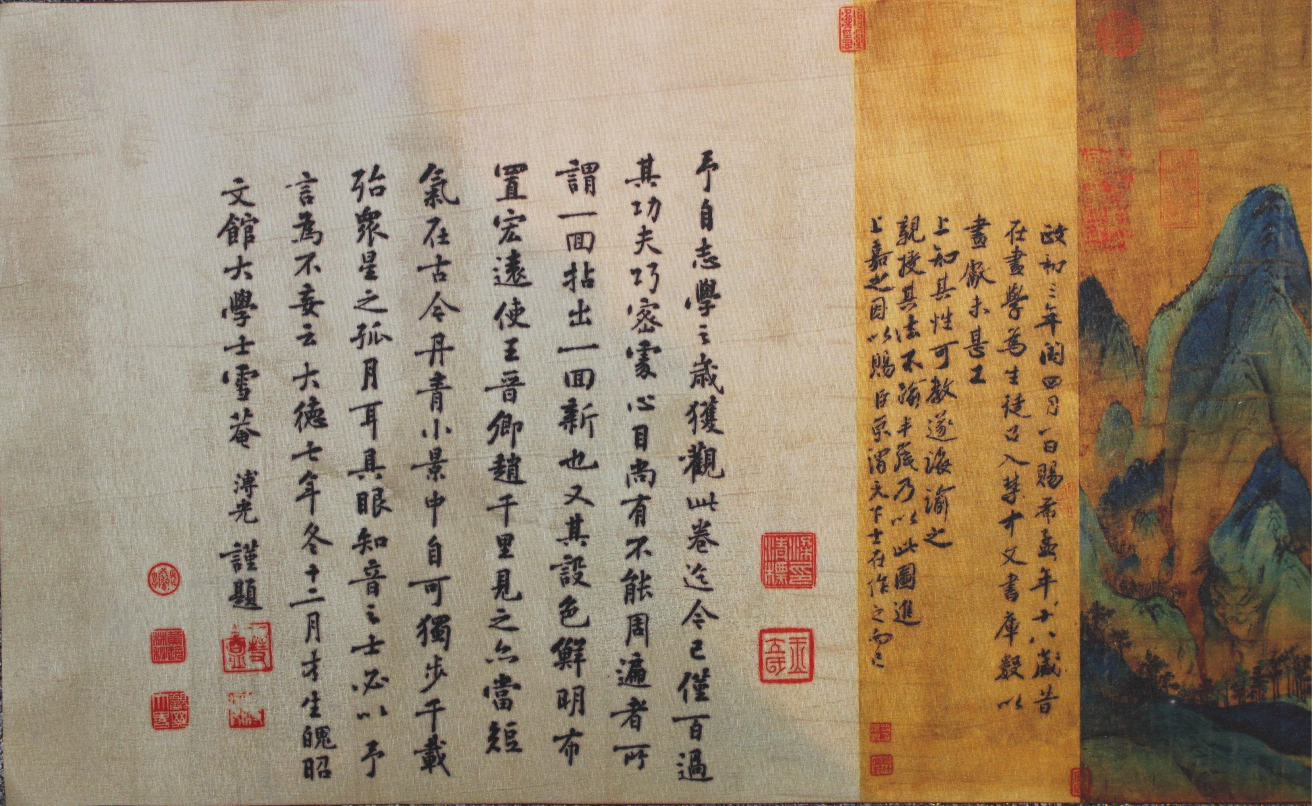 政和三年閏四月一日賜希孟年十八歲昔
在畫學為生徒召入禁中文書庫數以
畫獻未甚工
上知其性可教遂誨諭之
親授其法不踰半歲乃以此圖進
上嘉之因以賜臣京謂天下士在作之而已
梁印清標
予自志學之歲獲觀此卷迄今已僅百過
其功夫巧密處心目尚有不能周遍者所
謂一回拈出一回新也又其設色鮮明布
置宏遠使王晉卿趙千里見之亦當短
氣在古今丹青小景中自可獨步千載
殆眾星之孤月耳具眼知音之士必以予
言為不妄云大德七年冬十二月才生魄昭
文館大學士雪菴溥光謹題